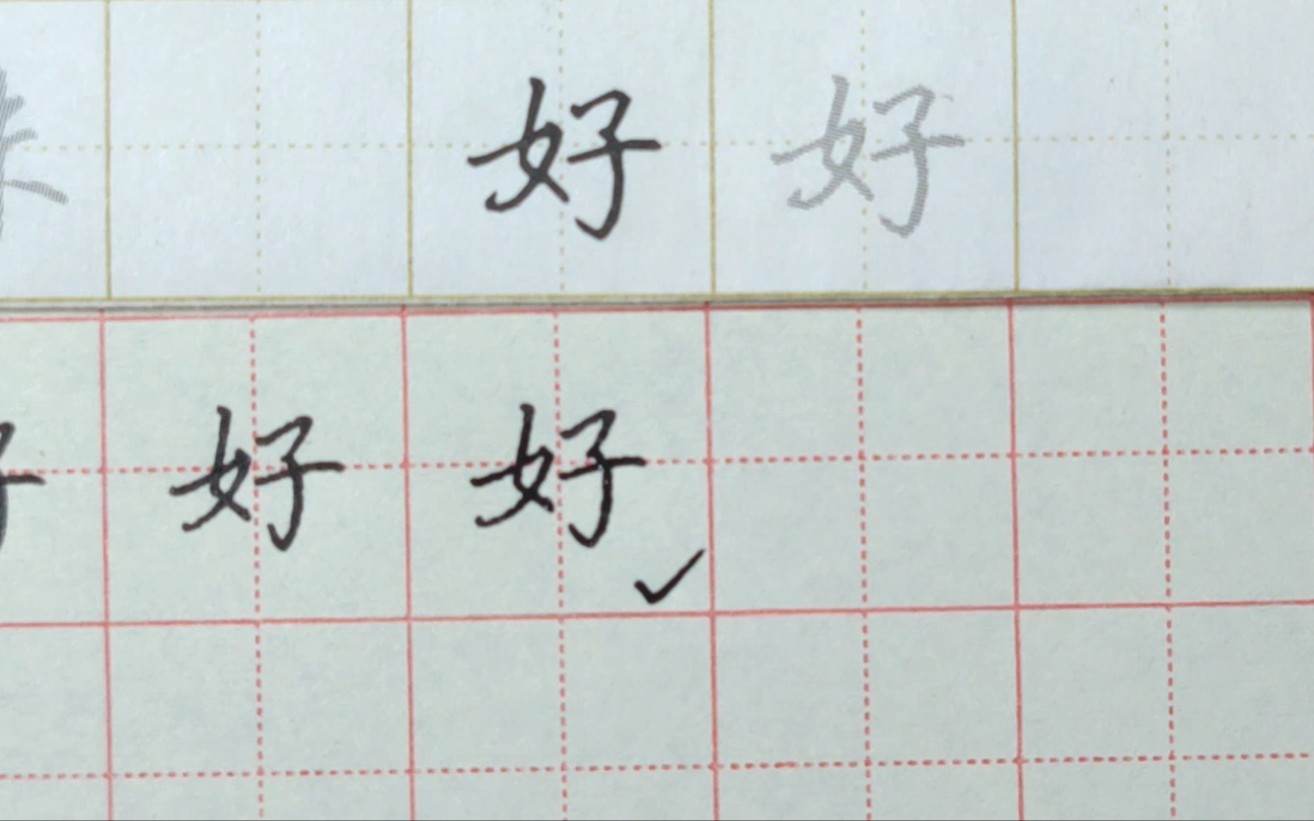 好 好
好 好 ✓